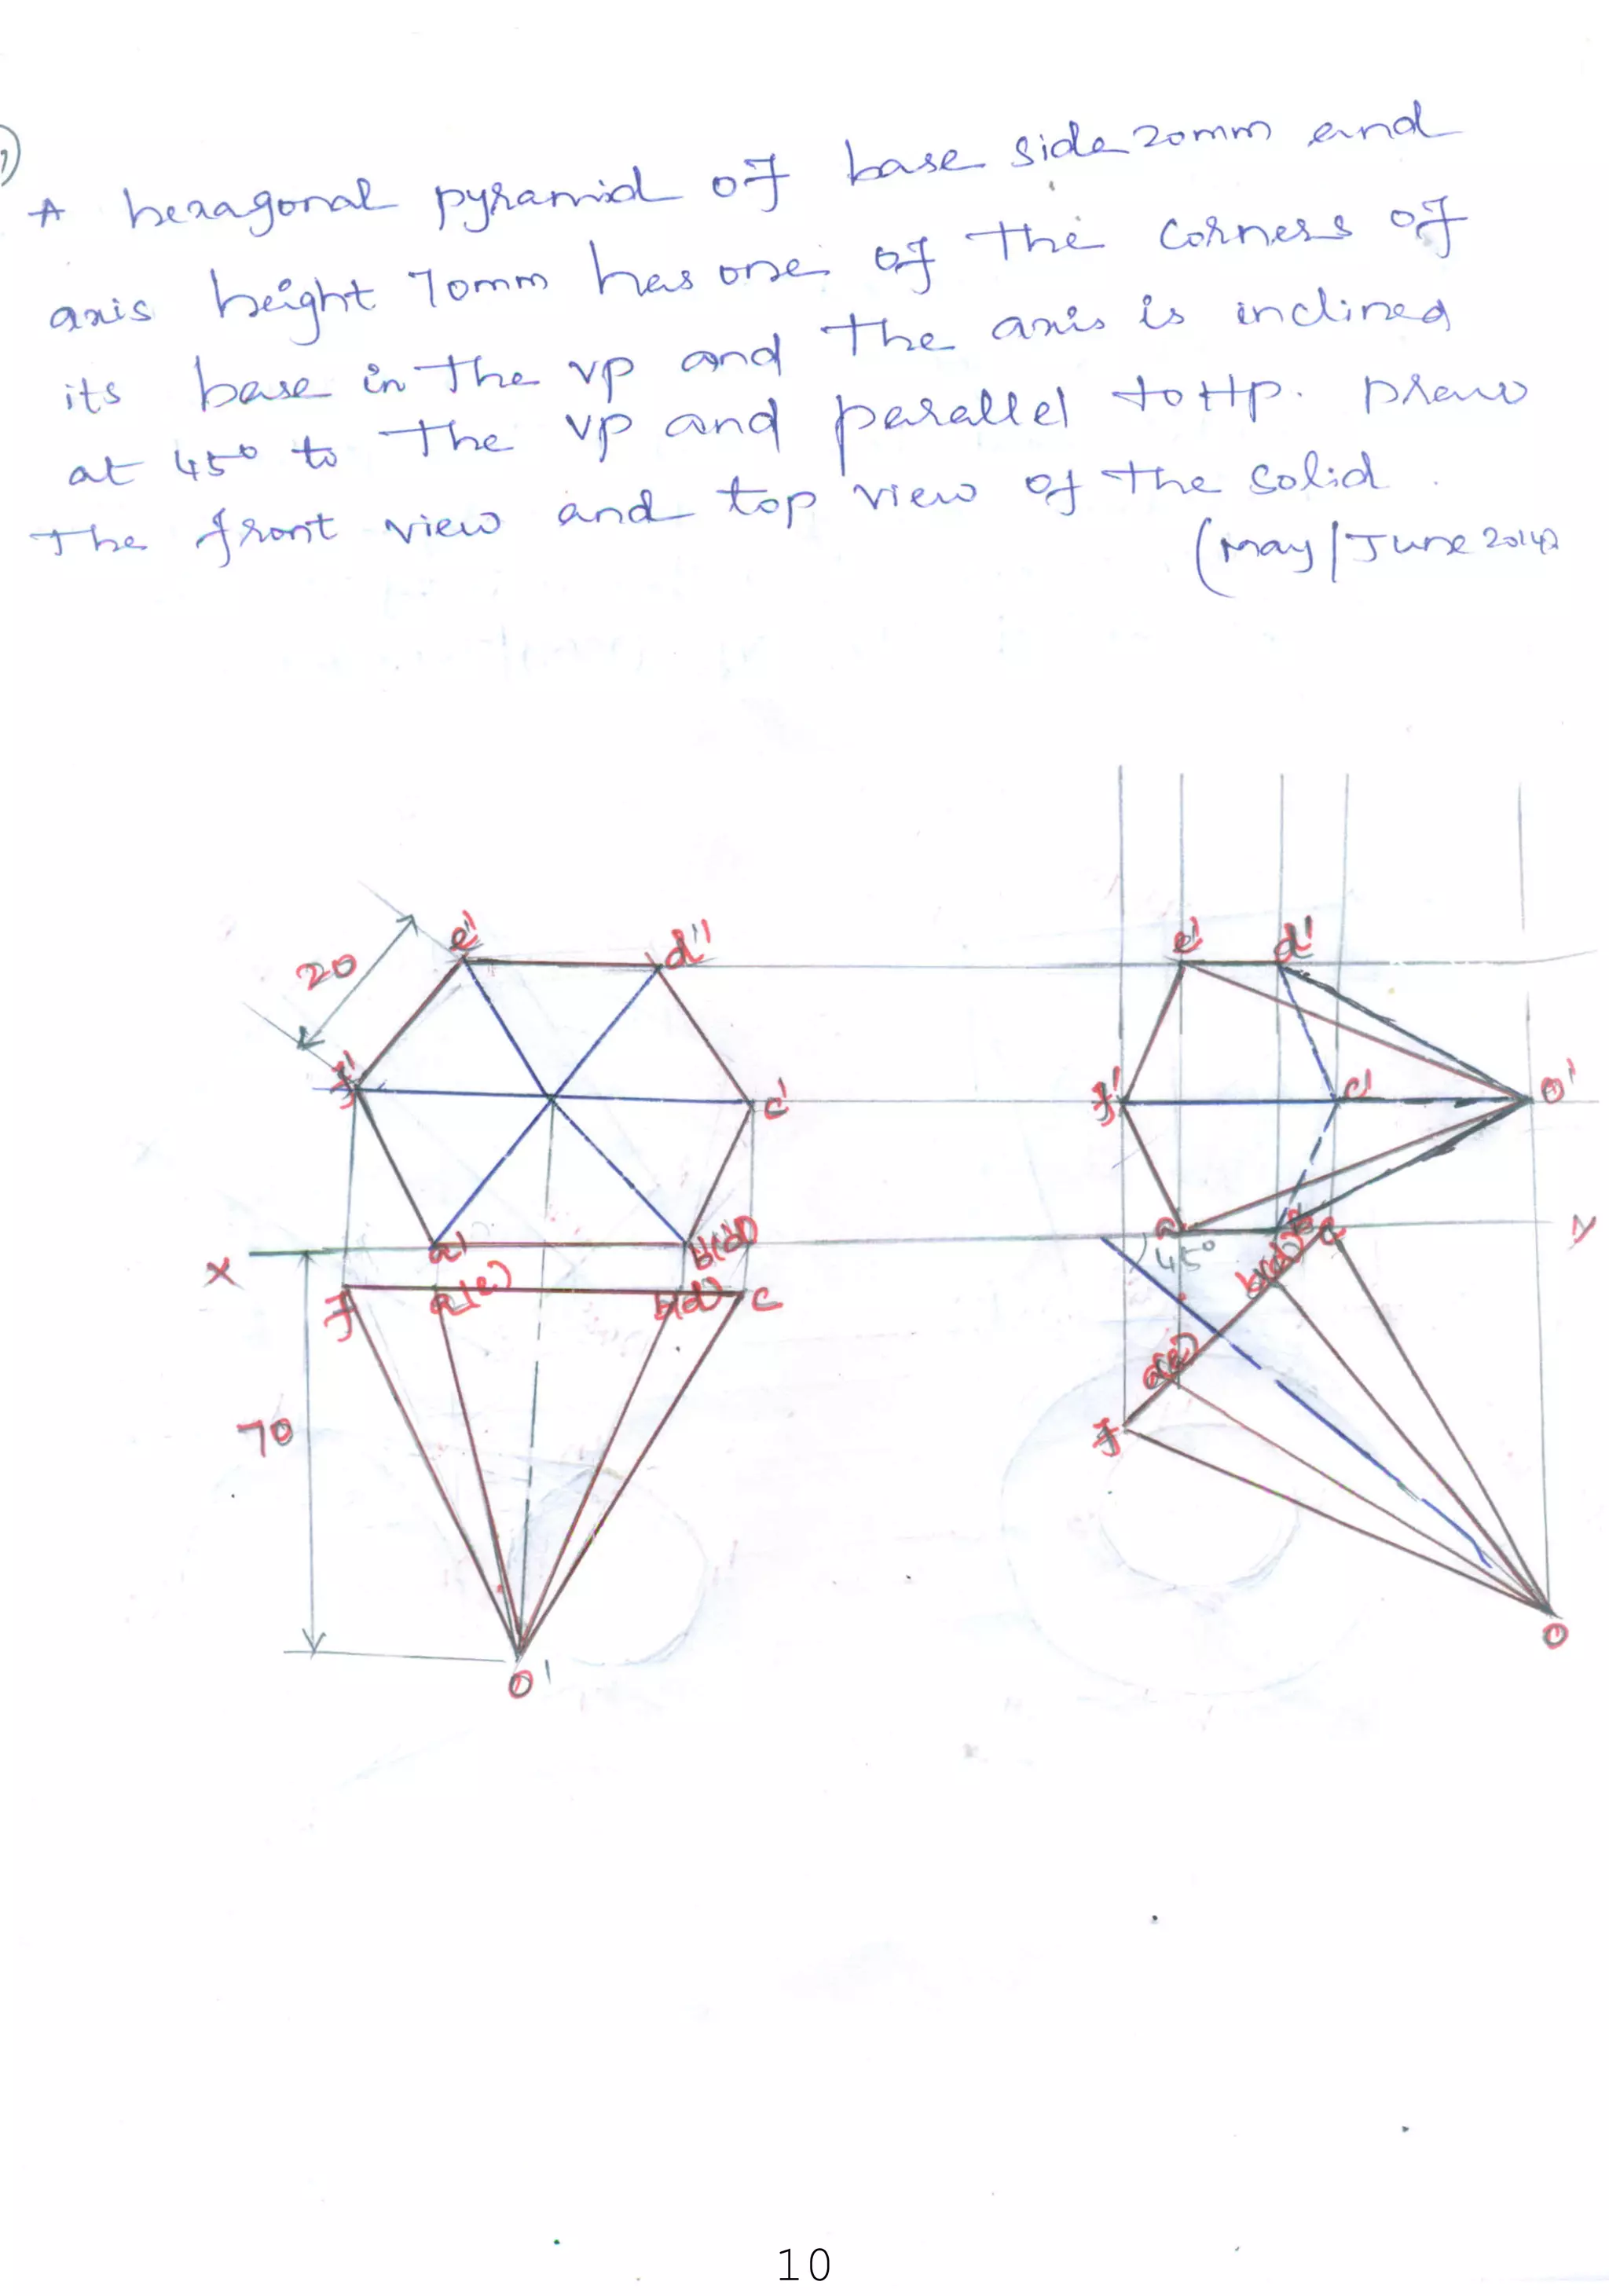 A hexagonal pyramid of base side 20mm and
axis height 70mm has one of the corners of
its base in the VP and the axis is inclined
at 45° to the VP and parallel to HP. Draw
the front view and top view of the solid.
(May/June 2014)
e' d''
20
f' c'
a' b'(d')
X
f a(e) b(d) c
70
o'
e' d'
f' c' o'
a' Y
45°
b(d) c
a(e)
f
o
10